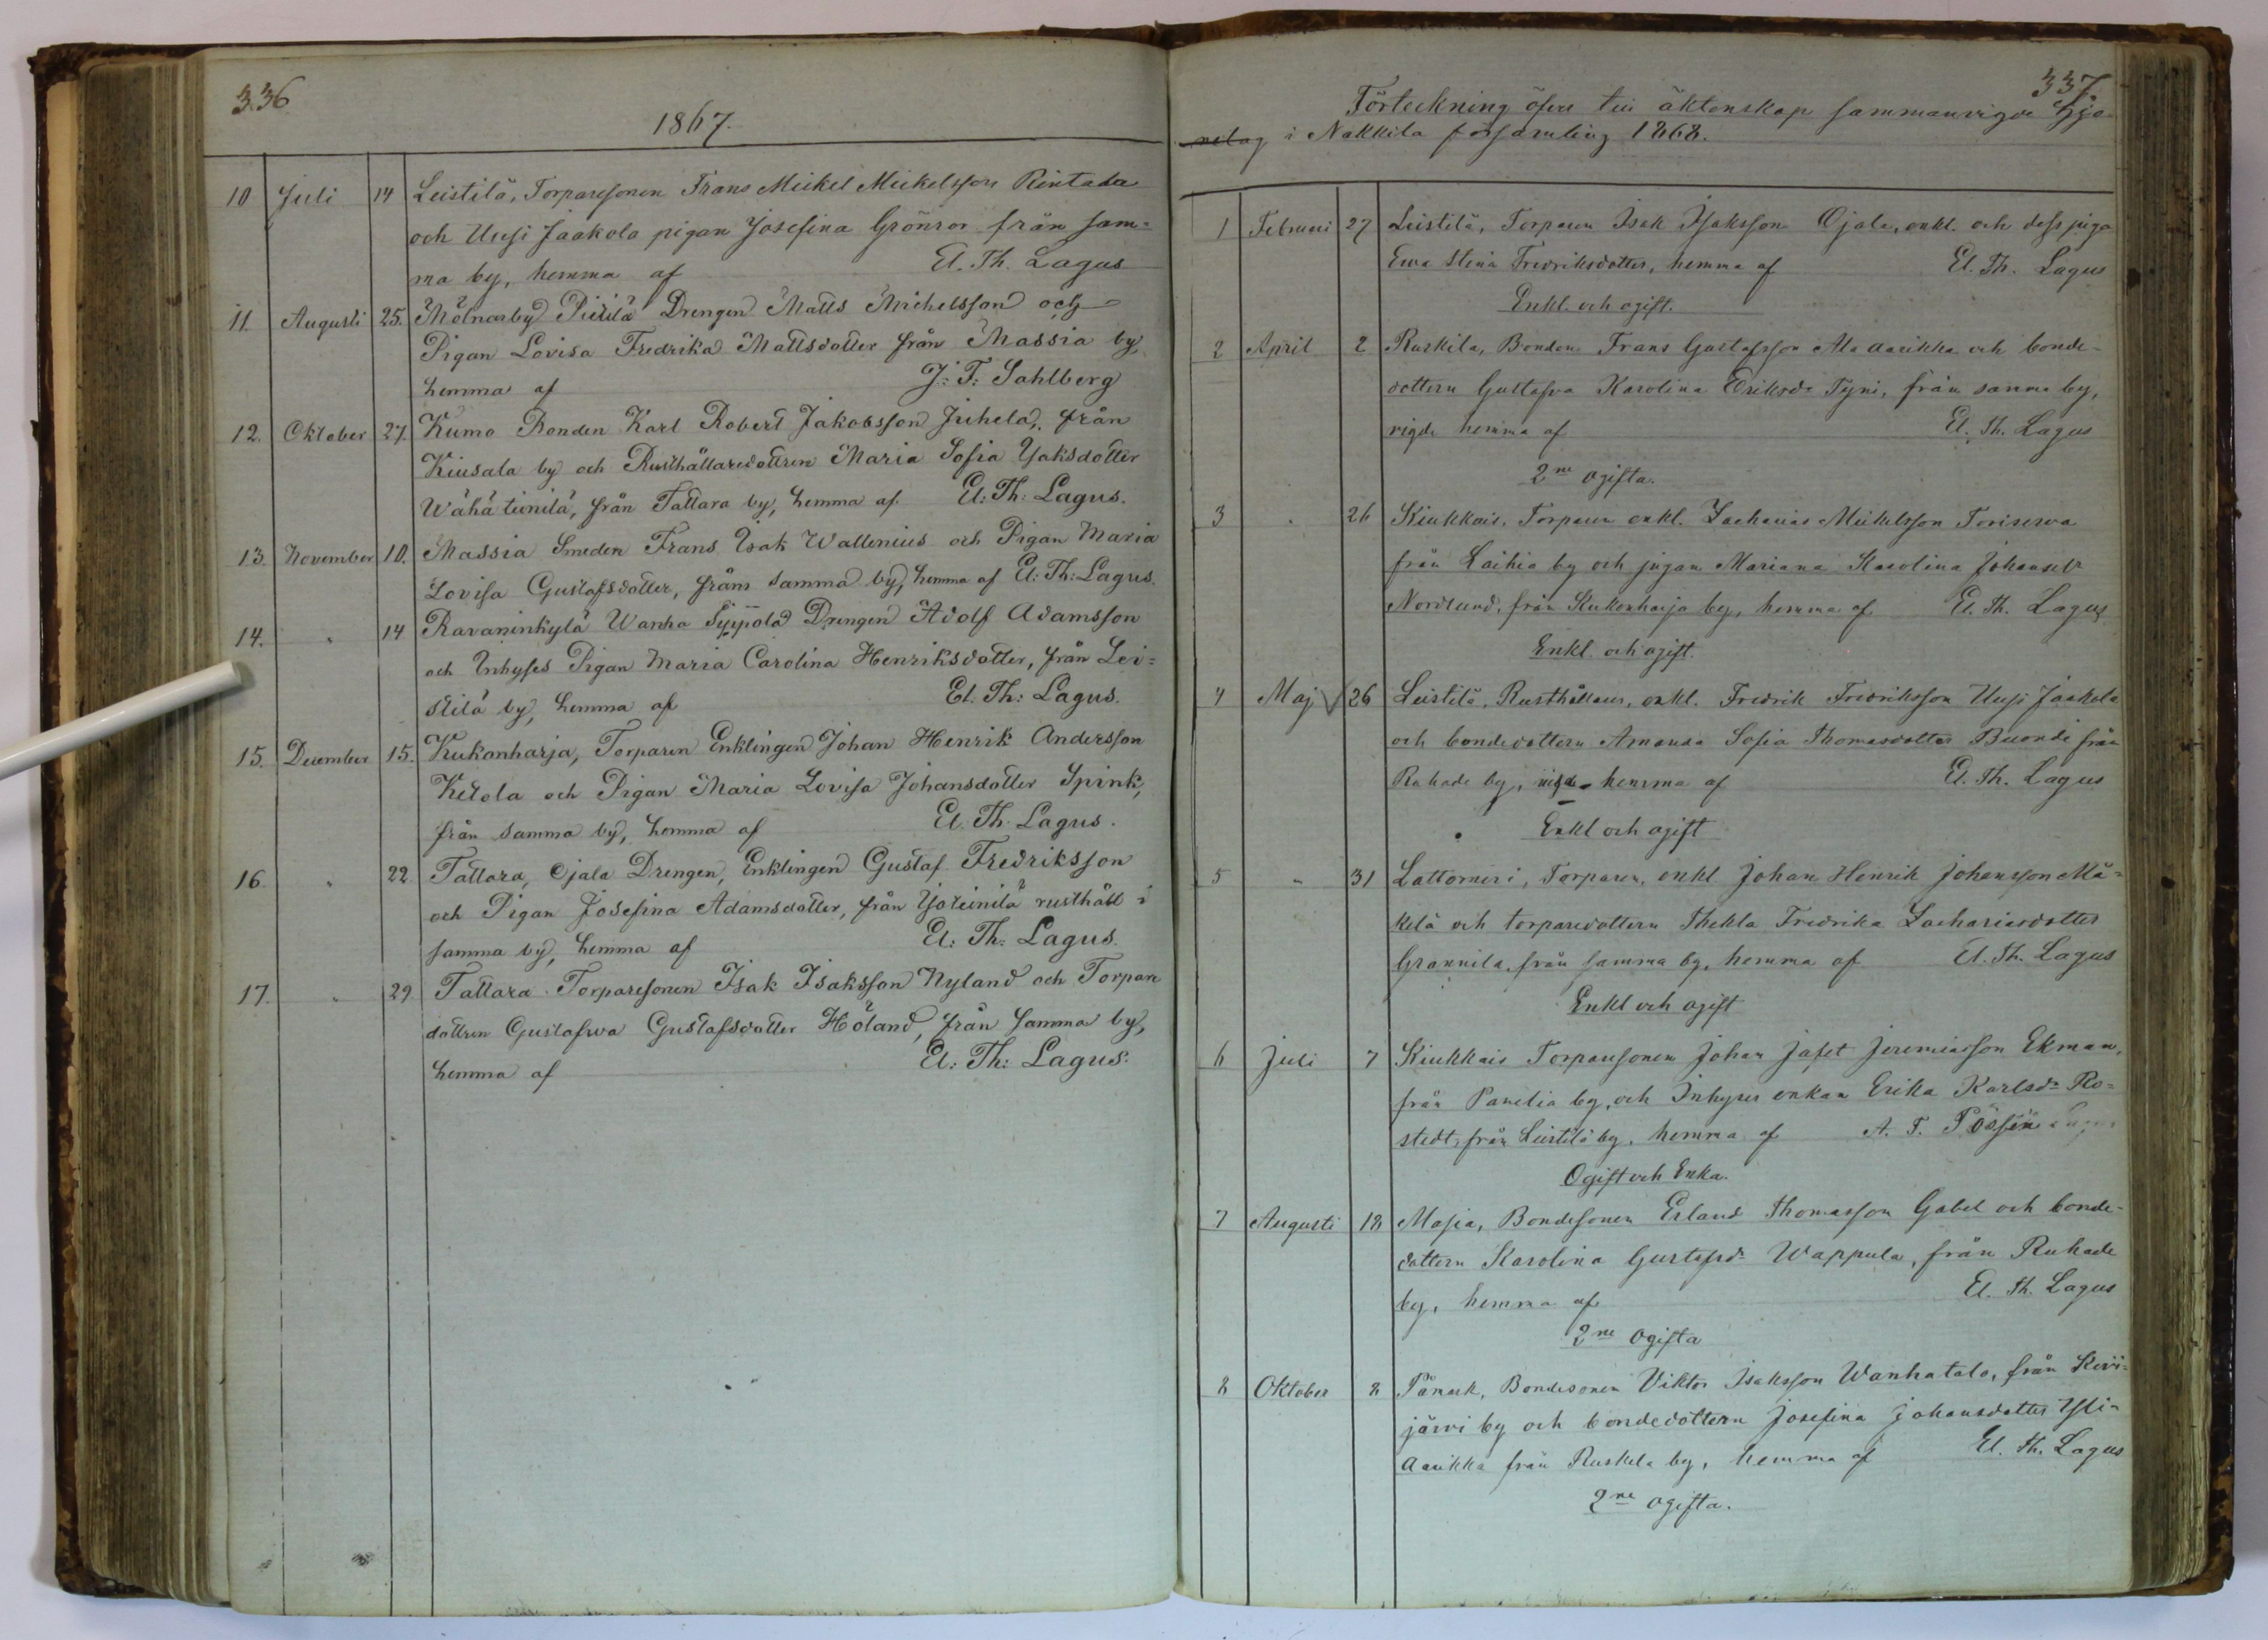 336
1867.
10 Juli 14 Leistilä, Torparesonen Frans Mickel Mickelsson Rintala
och Uusi Jaakola pigan Josefina Grönroos från sam=
ma by, hemma af El. Th. Lagus
11 Augusti 25. Mölnarby Pierilä Drengen Matts Michelsson och
Pigan Lovisa Fredrika Mattsdotter från Massia by
hemma af J: F: Sahlberg
12. Oktober 27. Kumo Bonden Karl Robert Jakobsson Juhela, från
Kiusala by och Rusthållaredottren Maria Sofia Ysaksdotter
Wähä tiinilä, från Tattara by, hemma af. El: Th: Lagus.
13. November 10. Massia Smeden Frans Isak Wallenius och Pigan Maria
Lovisa Gustafsdotter, från samma by, hemma af El: Th: Lagus.
14. " 14 Ravaninkylä Wanha Syppola Drengen Adolf Adamsson
och Inhyses Pigan Maria Carolina Henriksdotter, från Lei=
stilä by, hemma af El. Th: Lagus.
15. December 15. Kukonharja, Torparen Enklingen Johan Henrik Andersson
Ketola och Pigan Maria Lovisa Johansdotter Spink,
från samma by, hemma af El. Th. Lagus.
16. " 22. Tattara, Ojala Drengen, Enklingen Gustaf Fredriksson
och Pigan Josefina Adamsdotter, från Isotiinilä rusthåll i
samma by, hemma af El: Th: Lagus.
17. " 29 Tattara Torparesonen Isak Isaksson Nyland och Torpare
dottren Gustafva Gustafsdotter Höland, från samma by,
hemma af El: Th: Lagus.
337.
Förteckning öfver till äktenskap sammanvigde Hjo=
nelag i Nakkila församling 1868.
1 Februari 27 Leistilä, Torparen Isak Isaksson Ojala, enkl. och dess piga
Ewa Stina Fredriksdotter, hemma af El. Th. Lagus
Enkl. och ogift.
2 April 2 Ruskila, Bonden Frans Gustafsson Ala aarikka och bonde-
dottern Gustafva Karolina Eriksdr Tyni, från samma by,
vigde hemma af El. Th. Lagus
2ne ogifta.
3 " 26 Kiukkais, Torparen enkl. Zacharias Mickelsson Toriserva
från Laihia by och pigan Mariana Karolina Johansdr
Nordlund, från Kukonharja by, hemma af El. Th. Lagus
Enkl. och ogift.
4 Maj 26 Leistilä, Rusthållaren, enkl. Fredrik Fredriksson Uusi Jaakola
och bondedottern Amanda Sofia Thomasdotter Buordi från
Ruhade by, vigde hemma af El. Th. Lagus
Enkl och ogift
5 " 31 Lattomeri, Torparen, enkl Johan Henrik Johansson Mä=
kelä och torparedottern Thekla Fredrika Zachariasdotter
Grannila, från samma by, hemma af El. Th. Lagus
Enkl och ogift
6 Juli 7 Kiukkais Torparesonen Johan Jafet Jeremiasson Ekman,
från Panelia by, och Inhyses enkan Erika Karlsdr Ro=
stedt, från Leistilä by, hemma af A. F.
Ogift och Enka.
7 Augusti 18 Masia, Bondesonen Erland Thomasson Gabel och bonde-
dottern Karolina Gustafsdr Wappula, från Ruhade
by, hemma af El. Th. Lagus
2ne Ogifta
8 Oktober 8 Påmark, Bondesonen Viktor Isaksson Wanhatalo, från Kivi=
järvi by och bondedottern Josefina Johansdotter Yli-
Aarikka från Ruskela by, hemma af El. Th. Lagus
2ne ogifta.